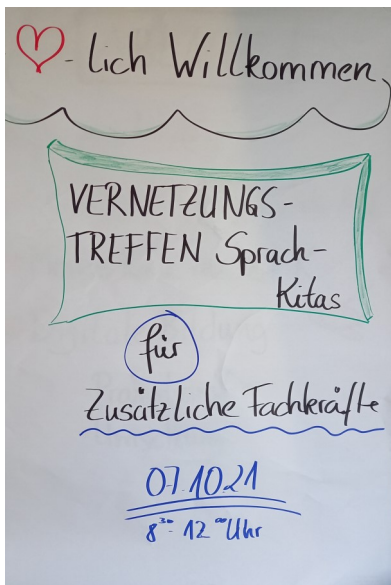 ♡-lich Willkommen
VERNETZUNGS-
TREFFEN Sprach-
Kitas
für
Zusätzliche Fachkräfte
07.10.21
8³⁰- 12⁰⁰ Uhr